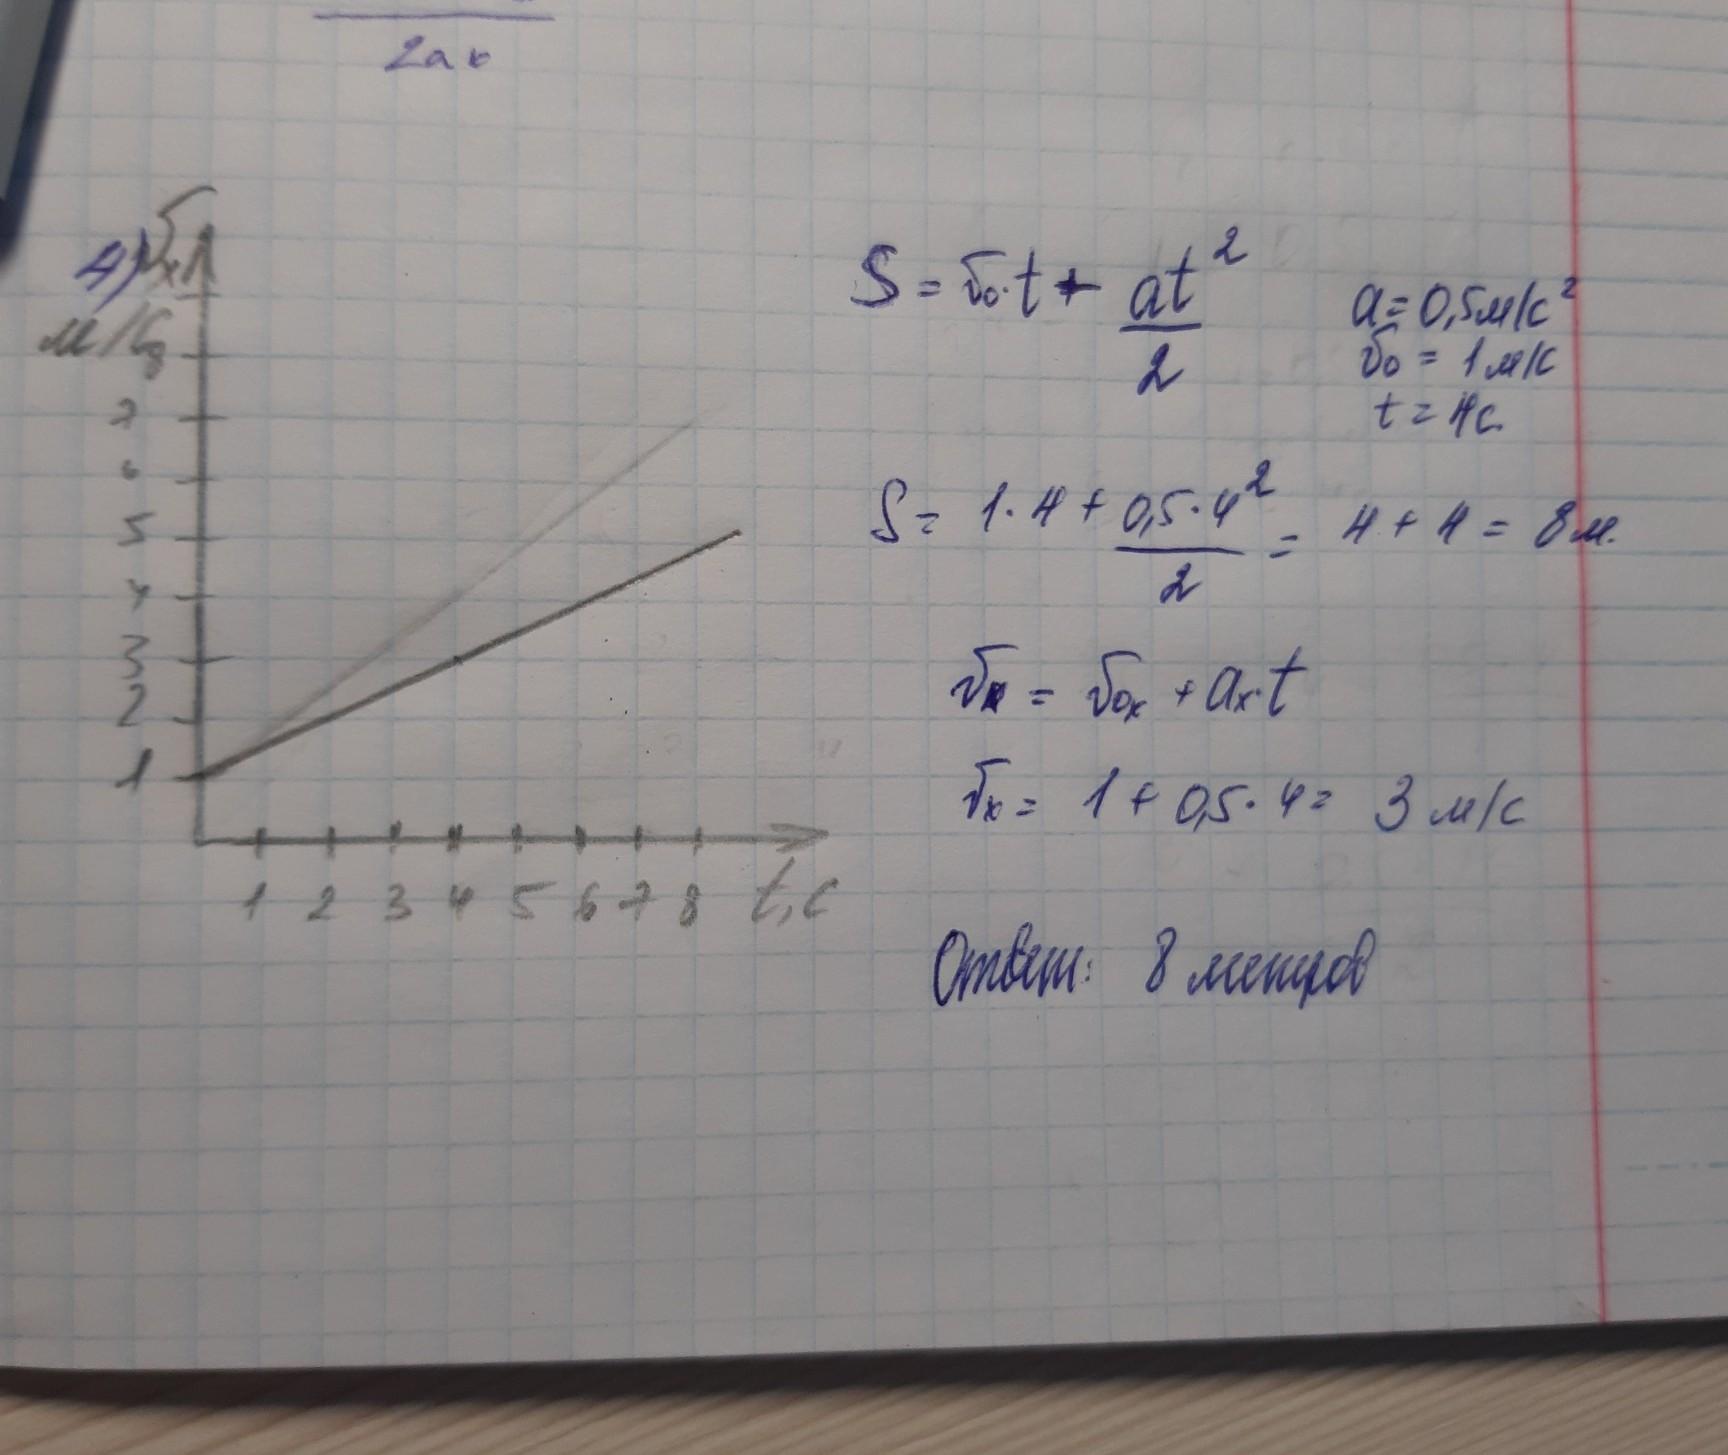 2aₓ
4) vₓ,
м/с
8
7
6
5
4
3
2
1
1 2 3 4 5 6 7 8 t, c
S = v₀·t + at²/2
a = 0,5 м/с²
v₀ = 1 м/с
t = 4с.
S = 1·4 + 0,5·4²/2 = 4 + 4 = 8 м.
vₓ = v₀ₓ + aₓ·t
vₓ = 1 + 0,5·4 = 3 м/с
Ответ: 8 метров